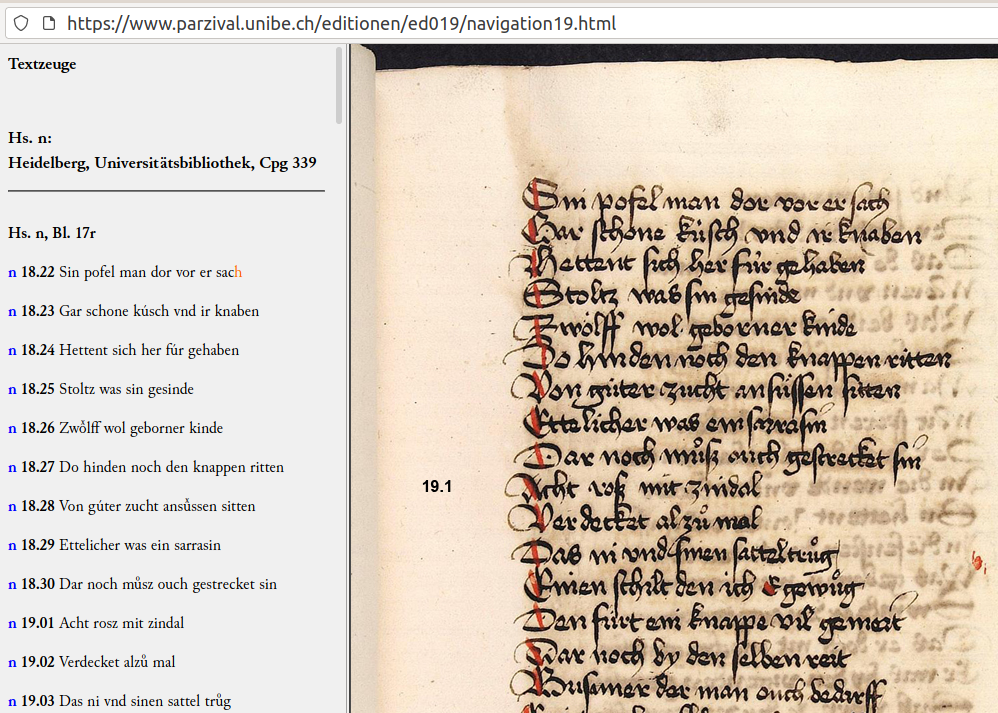 https://www.parzival.unibe.ch/editionen/ed019/navigation19.html
Textzeuge
Hs. n:
Heidelberg, Universitätsbibliothek, Cpg 339
Hs. n, Bl. 17r
n 18.22 Sin pofel man dor vor er sach
n 18.23 Gar schone kúsch vnd ir knaben
n 18.24 Hettent sich her fúr gehaben
n 18.25 Stoltz was sin gesinde
n 18.26 Zwo̊lff wol geborner kinde
n 18.27 Do hinden noch den knappen ritten
n 18.28 Von gúter zucht ansu̇̂ssen sitten
n 18.29 Ettelicher was ein sarrasin
n 18.30 Dar noch můsz ouch gestrecket sin
n 19.01 Acht rosz mit zindal
n 19.02 Verdecket alzů mal
n 19.03 Das ni vnd sinen sattel trůg
Sin pofel man dor vor er sach
Gar schone kúsch vnd ir knaben
Hettent sich her fúr gehaben
Stoltz was sin gesinde
Zwölff wol geborner kinde
Do hinden noch den knappen ritten
Von gúter zucht ansússen sitten
Ettelicher was ein sarrasin
Dar noch můsz ouch gestrecket sin
19.1
Acht rosz mit zindal
Verdecket alzů mal
Das ni vnd sinen sattel trůg
Einen schilt den ich E gewůg
Den fúrt ein knappe vil gemeit
Dar noch by den selben reit
Busamer der man ouch bedarff